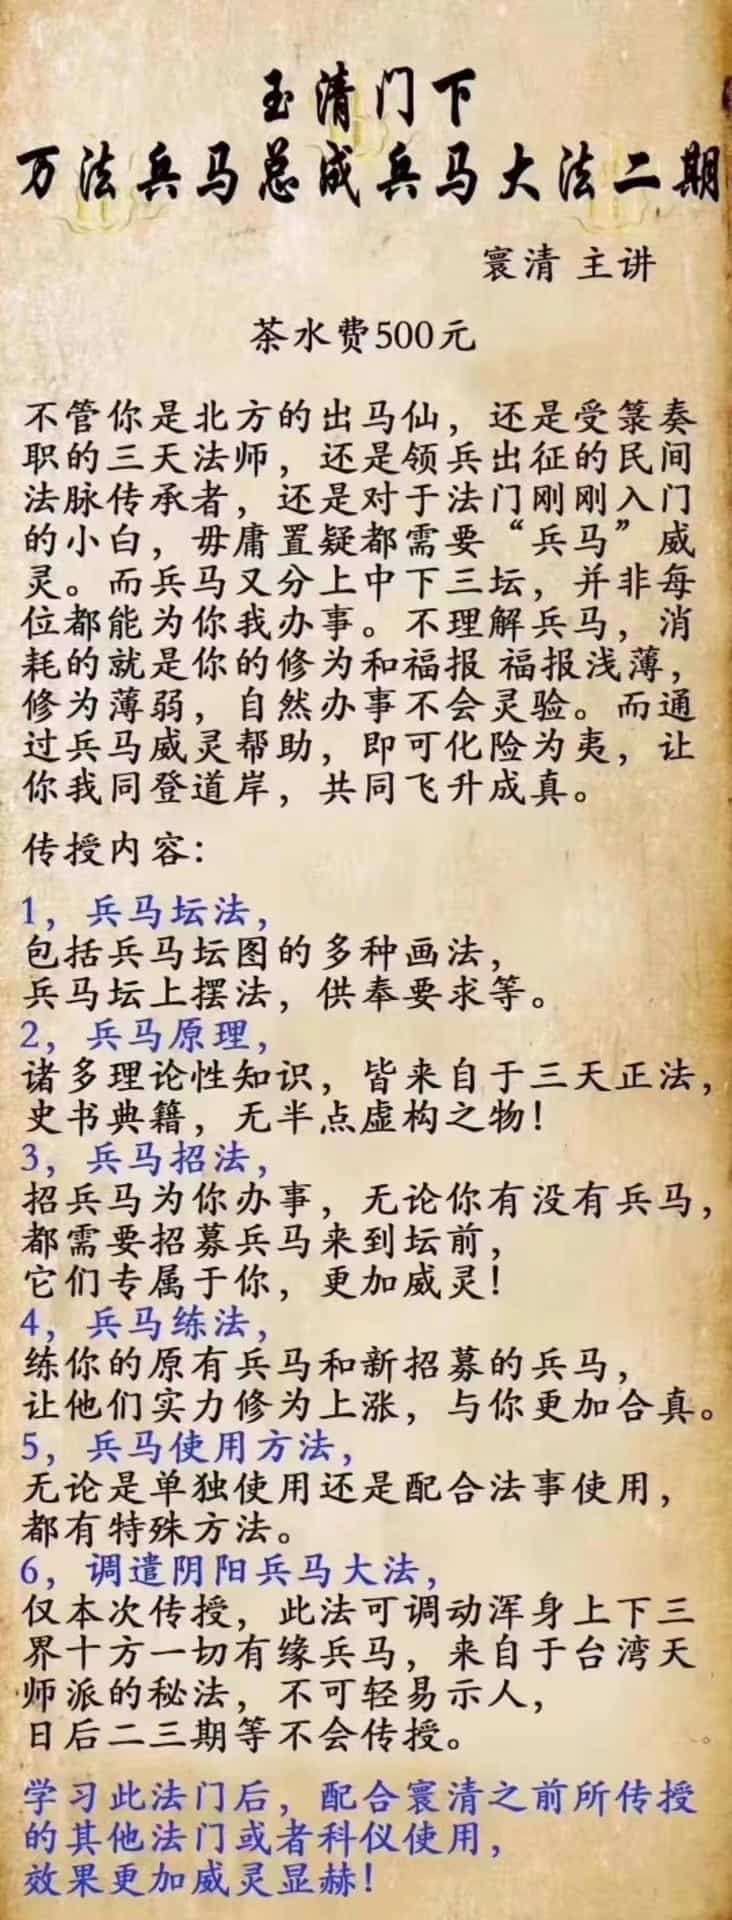 玉清门下
万法兵马总成兵马大法二期
寰清 主讲
茶水费500元
不管你是北方的出马仙，还是受箓奏
职的三天法师，还是领兵出征的民间
法脉传承者，还是对于法门刚刚入门
的小白，毋庸置疑都需要“兵马”威
灵。而兵马又分上中下三坛，并非每
位都能为你我办事。不理解兵马，消
耗的就是你的修为和福报 福报浅薄，
修为薄弱，自然办事不会灵验。而通
过兵马威灵帮助，即可化险为夷，让
你我同登道岸，共同飞升成真。
传授内容：
1，兵马坛法，
包括兵马坛图的多种画法，
兵马坛上摆法，供奉要求等。
2，兵马原理，
诸多理论性知识，皆来自于三天正法，
史书典籍，无半点虚构之物！
3，兵马招法，
招兵马为你办事，无论你有没有兵马，
都需要招募兵马来到坛前，
它们专属于你，更加威灵！
4，兵马练法，
练你的原有兵马和新招募的兵马，
让他们实力修为上涨，与你更加合真。
5，兵马使用方法，
无论是单独使用还是配合法事使用，
都有特殊方法。
6，调遣阴阳兵马大法，
仅本次传授，此法可调动浑身上下三
界十方一切有缘兵马，来自于台湾天
师派的秘法，不可轻易示人，
日后二三期等不会传授。
学习此法门后，配合寰清之前所传授
的其他法门或者科仪使用，
效果更加威灵显赫！